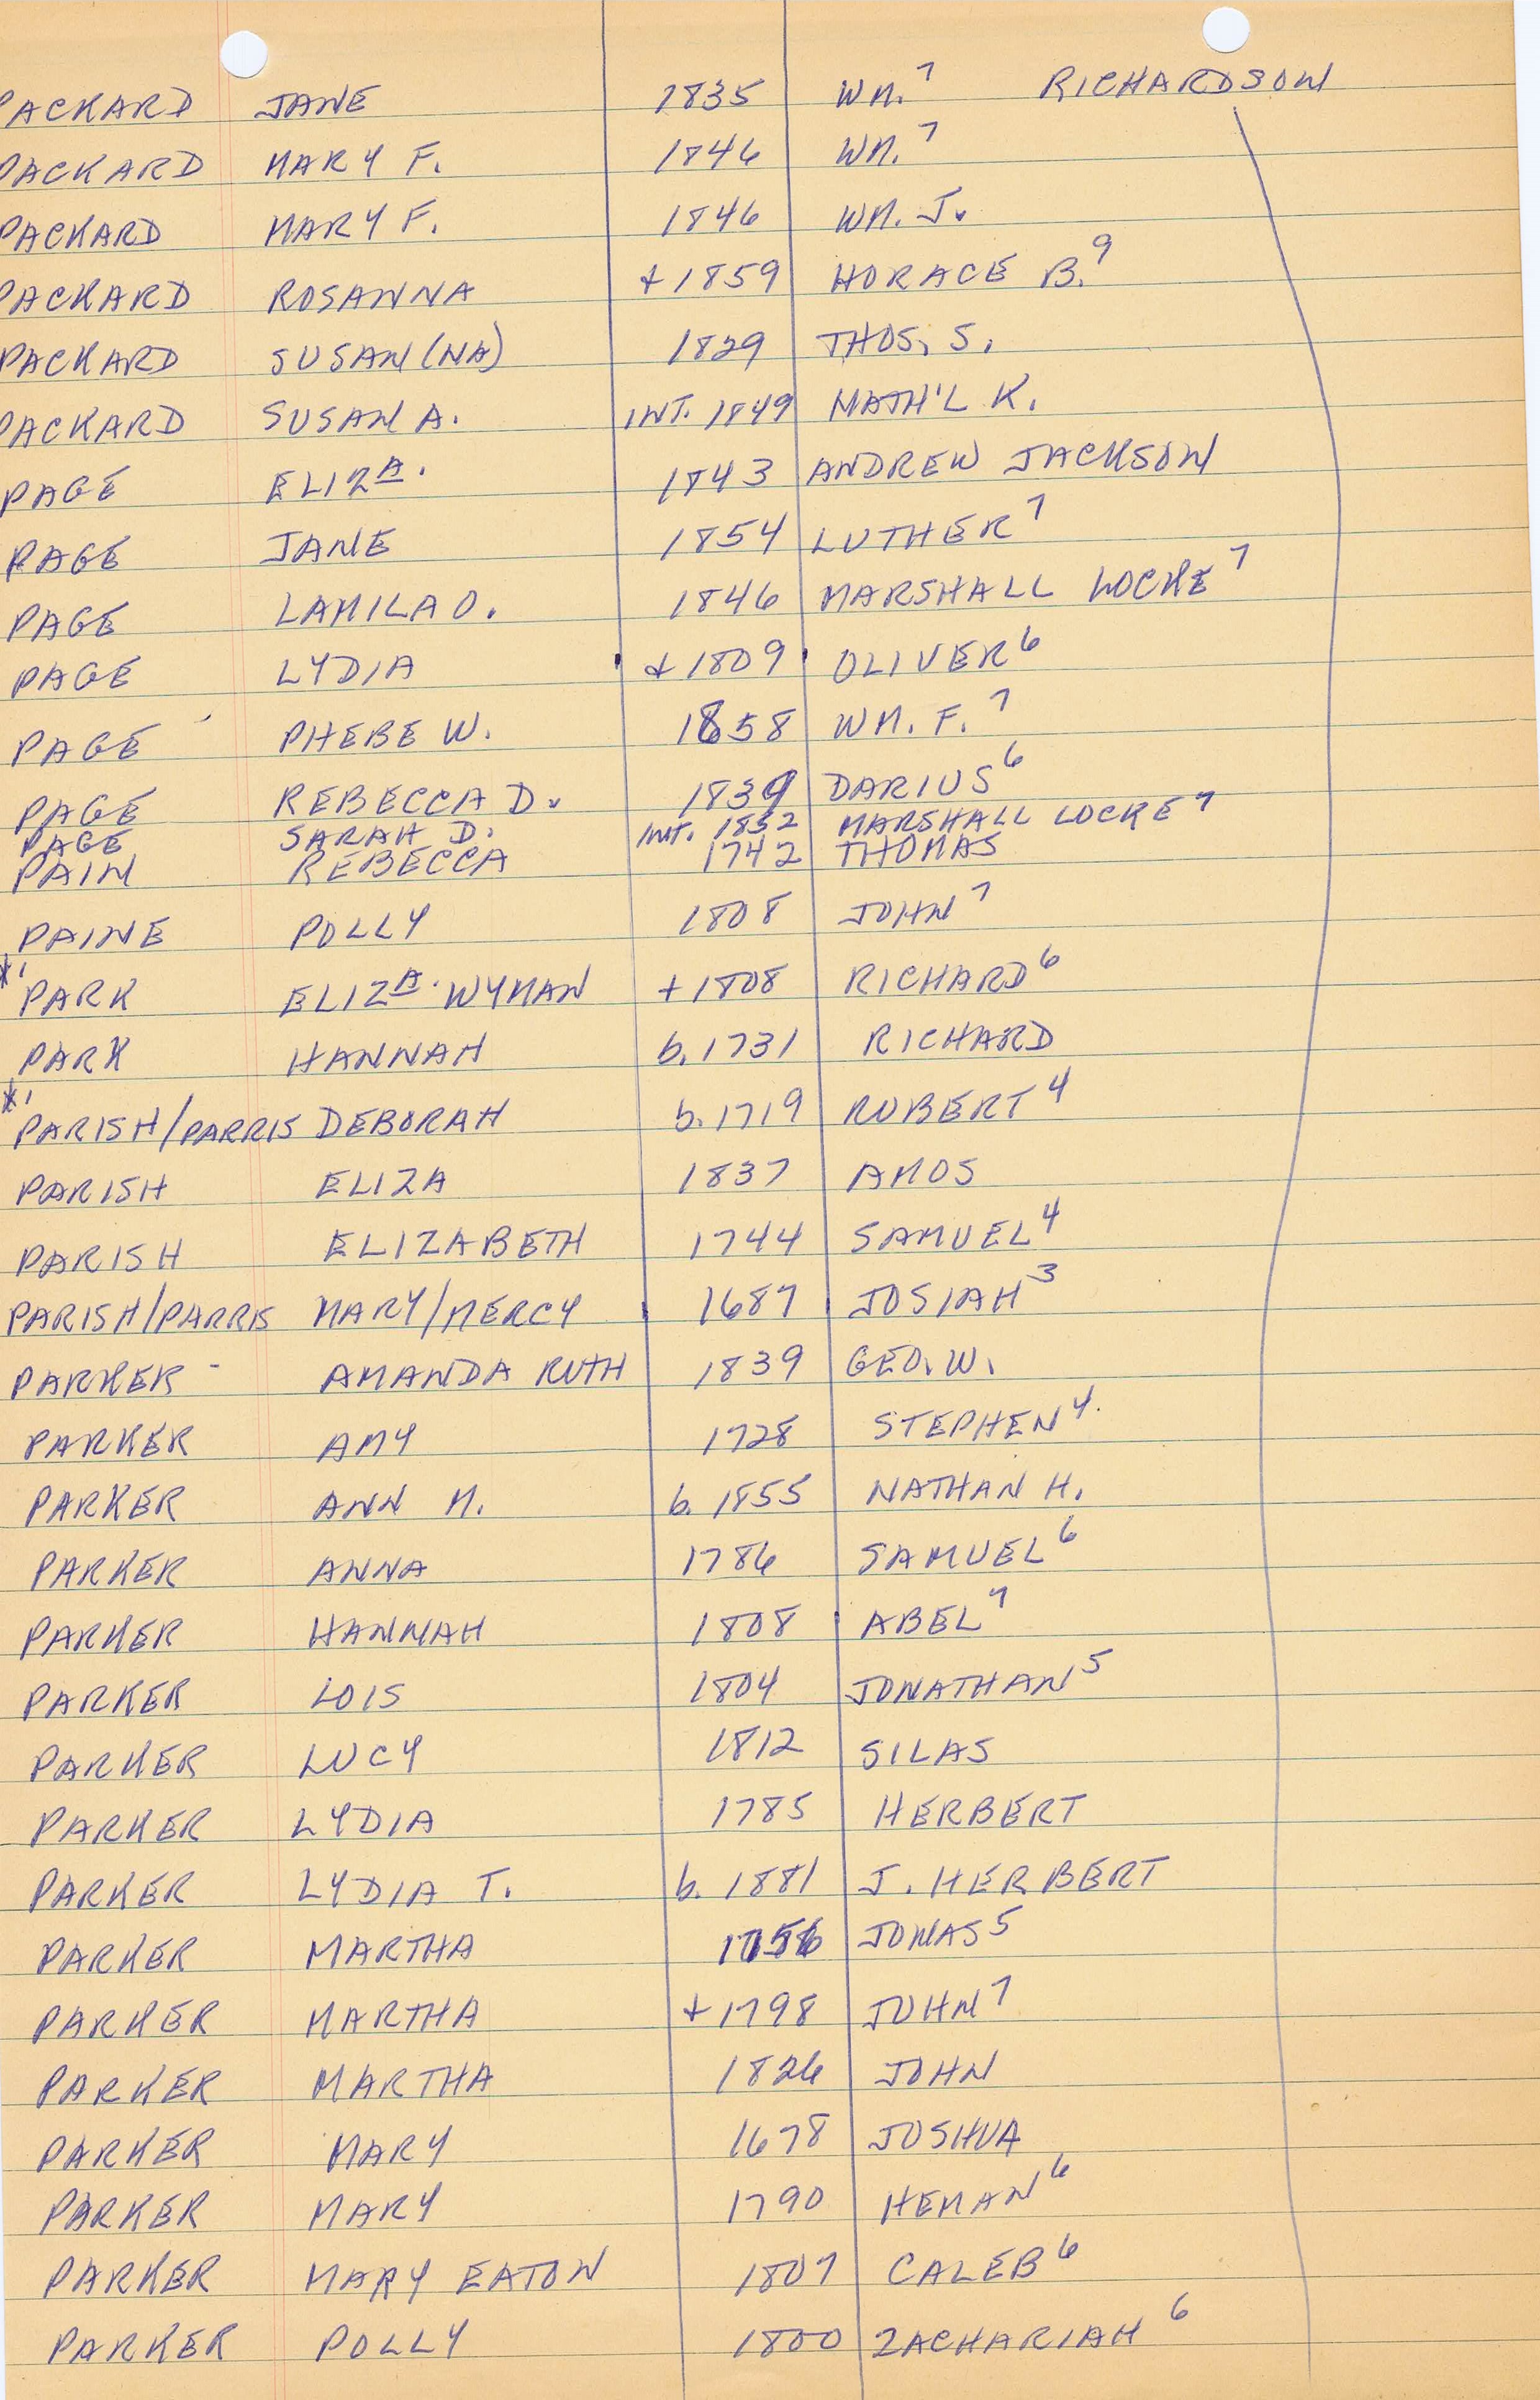 PACKARD JANE 1835 WM.⁷ RICHARDSON
PACKARD MARY F. 1846 WM.⁷
PACKARD MARY F. 1846 WM. J.
PACKARD ROSANNA + 1859 HORACE B.⁹
PACKARD SUSAN(NA) 1829 THOS. S.
PACKARD SUSAN A. INT. 1849 NATH'L K.
PAGE ELIZA. 1843 ANDREW JACKSON
PAGE JANE 1854 LUTHER⁷
PAGE LAMILA O. 1846 MARSHALL LOCKE⁷
PAGE LYDIA + 1809 OLIVER⁶
PAGE PHEBE W. 1858 WM. F.⁷
PAGE REBECCA D. 1839 DARIUS⁶
PAGE SARAH D. INT. 1832 MARSHALL LOCKE⁷
PAIN REBECCA 1742 THOMAS
PAINE POLLY 1808 JOHN⁷
*' PARK ELIZA. WYMAN + 1808 RICHARD⁶
PARK HANNAH b. 1731 RICHARD
*' PARISH/PARRIS DEBORAH b. 1719 ROBERT⁴
PARISH ELIZA 1837 AMOS
PARISH ELIZABETH 1744 SAMUEL⁴
PARISH/PARRIS MARY/MERCY 1687 JOSIAH³
PARKER AMANDA RUTH 1839 GEO. W.
PARKER AMY 1728 STEPHEN⁴.
PARKER ANN M. b. 1855 NATHAN H.
PARKER ANNA 1786 SAMUEL⁶
PARKER HANNAH 1808 ABEL⁷
PARKER LOIS 1804 JONATHAN⁵
PARKER LUCY 1812 SILAS
PARKER LYDIA 1785 HERBERT
PARKER LYDIA T. b. 1881 J. HERBERT
PARKER MARTHA JONAS⁵
PARKER MARTHA + 1798 JOHN⁷
PARKER MARTHA 1826 JOHN
PARKER MARY 1678 JOSHUA
PARKER MARY 1790 HEMAN⁶
PARKER MARY EATON 1807 CALEB⁶
PARKER POLLY 1800 ZACHARIAH⁶